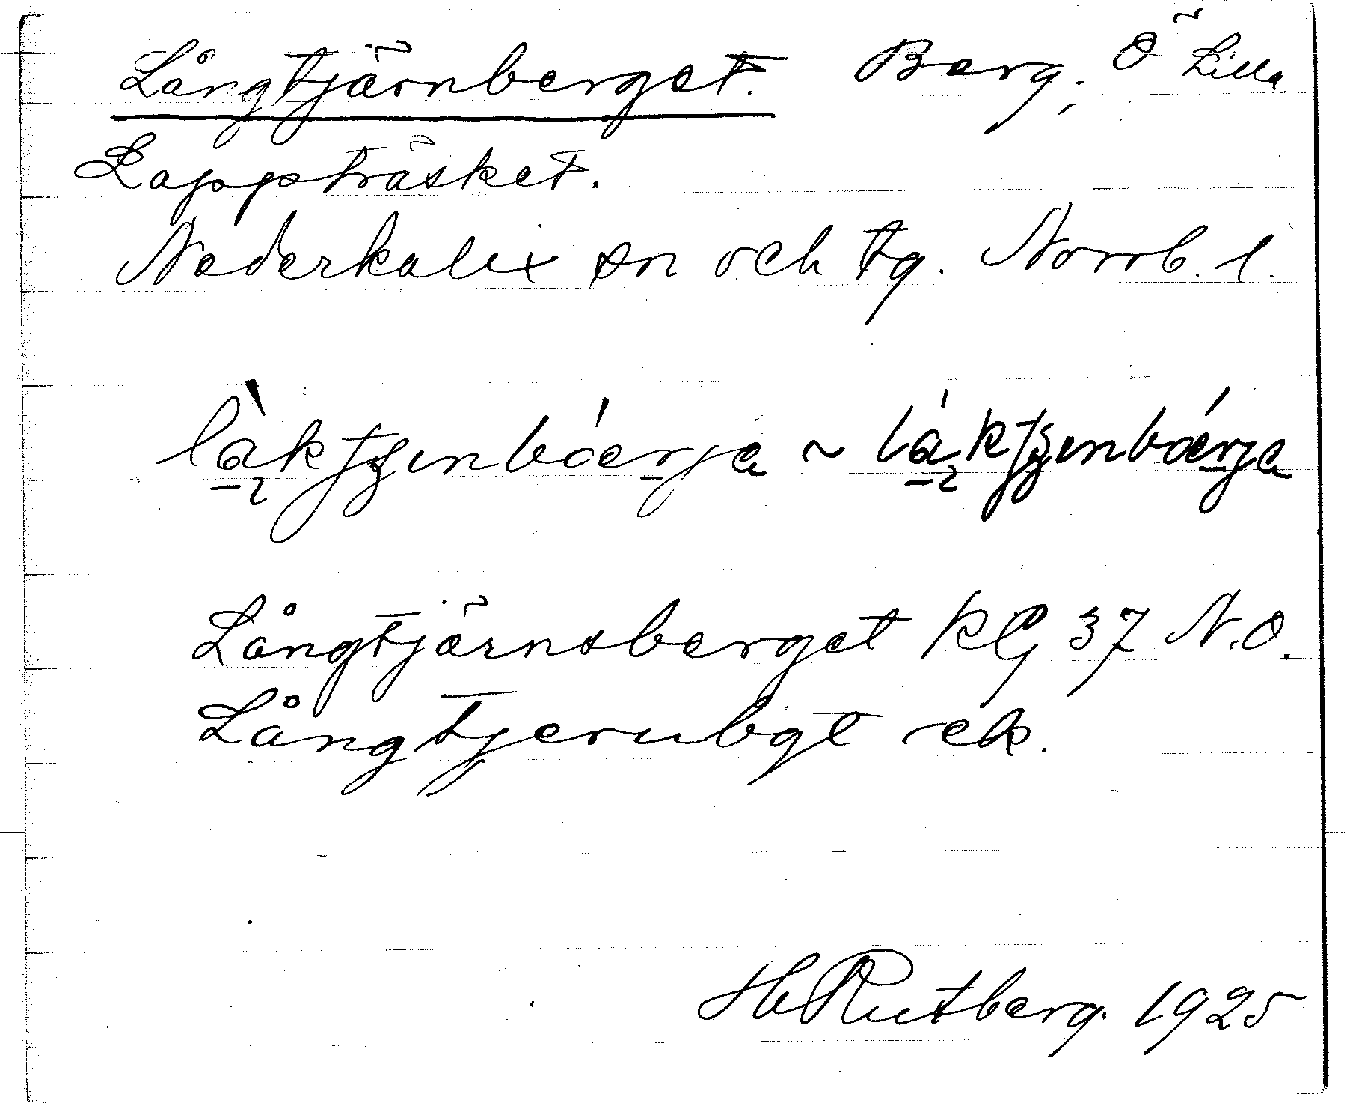 Långtjärnberget. Berg, Ö Lilla
Lappträsket.
Nederkalix sn och tg. Norrb. l.
Långtjärnsberget KG 37 N.O.
Långtjernbgt ek.
H Rutberg. 1925